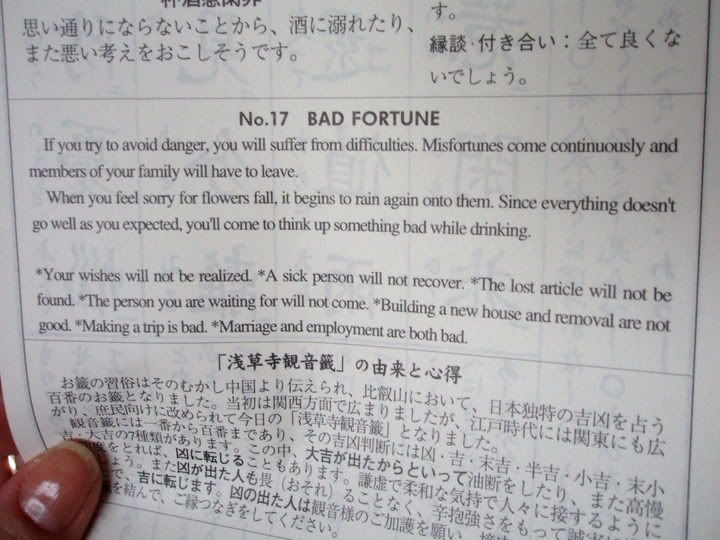 思い通りにならないことから、酒に溺れたり、
また悪い考えをおこしそうです。
す。
縁談・付き合い：全て良くな
いでしょう。
No.17 BAD FORTUNE
If you try to avoid danger, you will suffer from difficulties. Misfortunes come continuously and
members of your family will have to leave.
When you feel sorry for flowers fall, it begins to rain again onto them. Since everything doesn't
go well as you expected, you'll come to think up something bad while drinking.
*Your wishes will not be realized. *A sick person will not recover. *The lost article will not be
found. *The person you are waiting for will not come. *Building a new house and removal are not
good. *Making a trip is bad. *Marriage and employment are both bad.
「浅草寺観音籤」の由来と心得
お籤の習俗はそのむかし中国より伝えられ、比叡山において、日本独特の吉凶を占う
百番のお籤となりました。当初は関西方面で広まりましたが、江戸時代には関東にも広
がり、庶民向けに改められて今日の「浅草寺観音籤」となりました。
観音籤には一番から百番まであり、その吉凶判断には凶・吉・末吉・半吉・小吉・末小
吉・大吉の7種類があります。この中、大吉が出たからといって油断をしたり、また高慢
度をとれば、凶に転じることもあります。謙虚で柔和な気持で人々に接するように
しょう。また凶が出た人も畏（おそれ）ることなく、辛抱強さをもって誠実に
吉に転じます。凶の出た人は観音様のご加護を願い、
を結んで、ご縁つなぎをしてください。